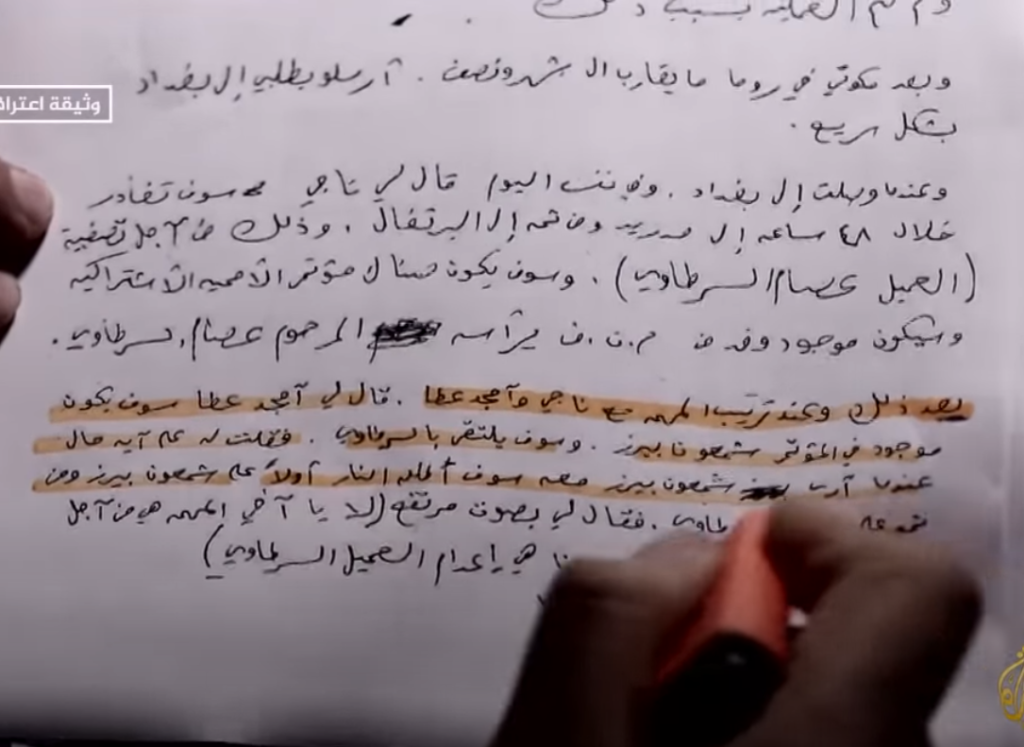 وبعد مكوثي في روما ما يقارب ال شهر ونصف . أرسلو بطلبي إلى بغداد
وثيقة اعترا
بشكل سريع .
وعندما وصلت إلى بغداد . وفي نفس اليوم قال لي ناجي سوف تغادر
خلال ٤٨ ساعه إلى مدريد ومن ثمه إلى البرتغال . وذلك من أجل تصفية
(العميل عصام السرطاوي) . وسوف يكون هناك مؤتمر الأمميه الأشتراكيه
وسيكون موجود وفد من م.ت.ف يرأسه المرحوم عصام السرطاوي .
بعد ذلك وعند ترتيب المهمه مع ناجي وأمجد عطا . قال لي أمجد عطا سوف يكون
موجود في المؤتمر شمعون بيرز . وسوف يلتقي بالسرطاوي . فقلت له على أيه حال
عندما أرى شمعون بيرز معه سوف أطلق النار أولاً على شمعون بيرز ومن
ثم على طاوي . فقال لي بصوت مرتفع (لا يا أخي المهمه هي من أجل
نا هي إعدام العميل السرطاوي)